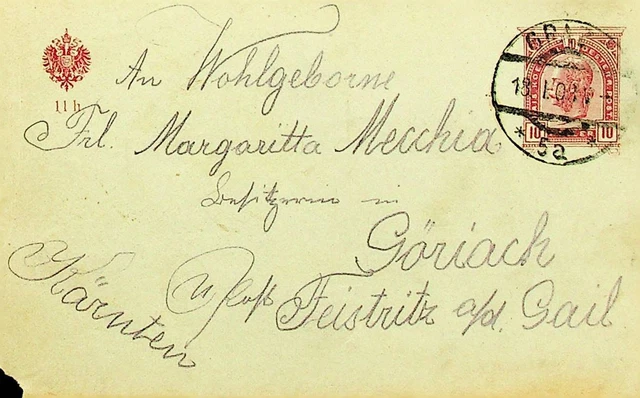 11 h
GRAZ
18.I.08
* 5a *
10 10
An Wohlgeborne
Frl. Margaritta Mecchia
Besitzerin in
Göriach
Post Feistritz a/d. Gail
Kärnten